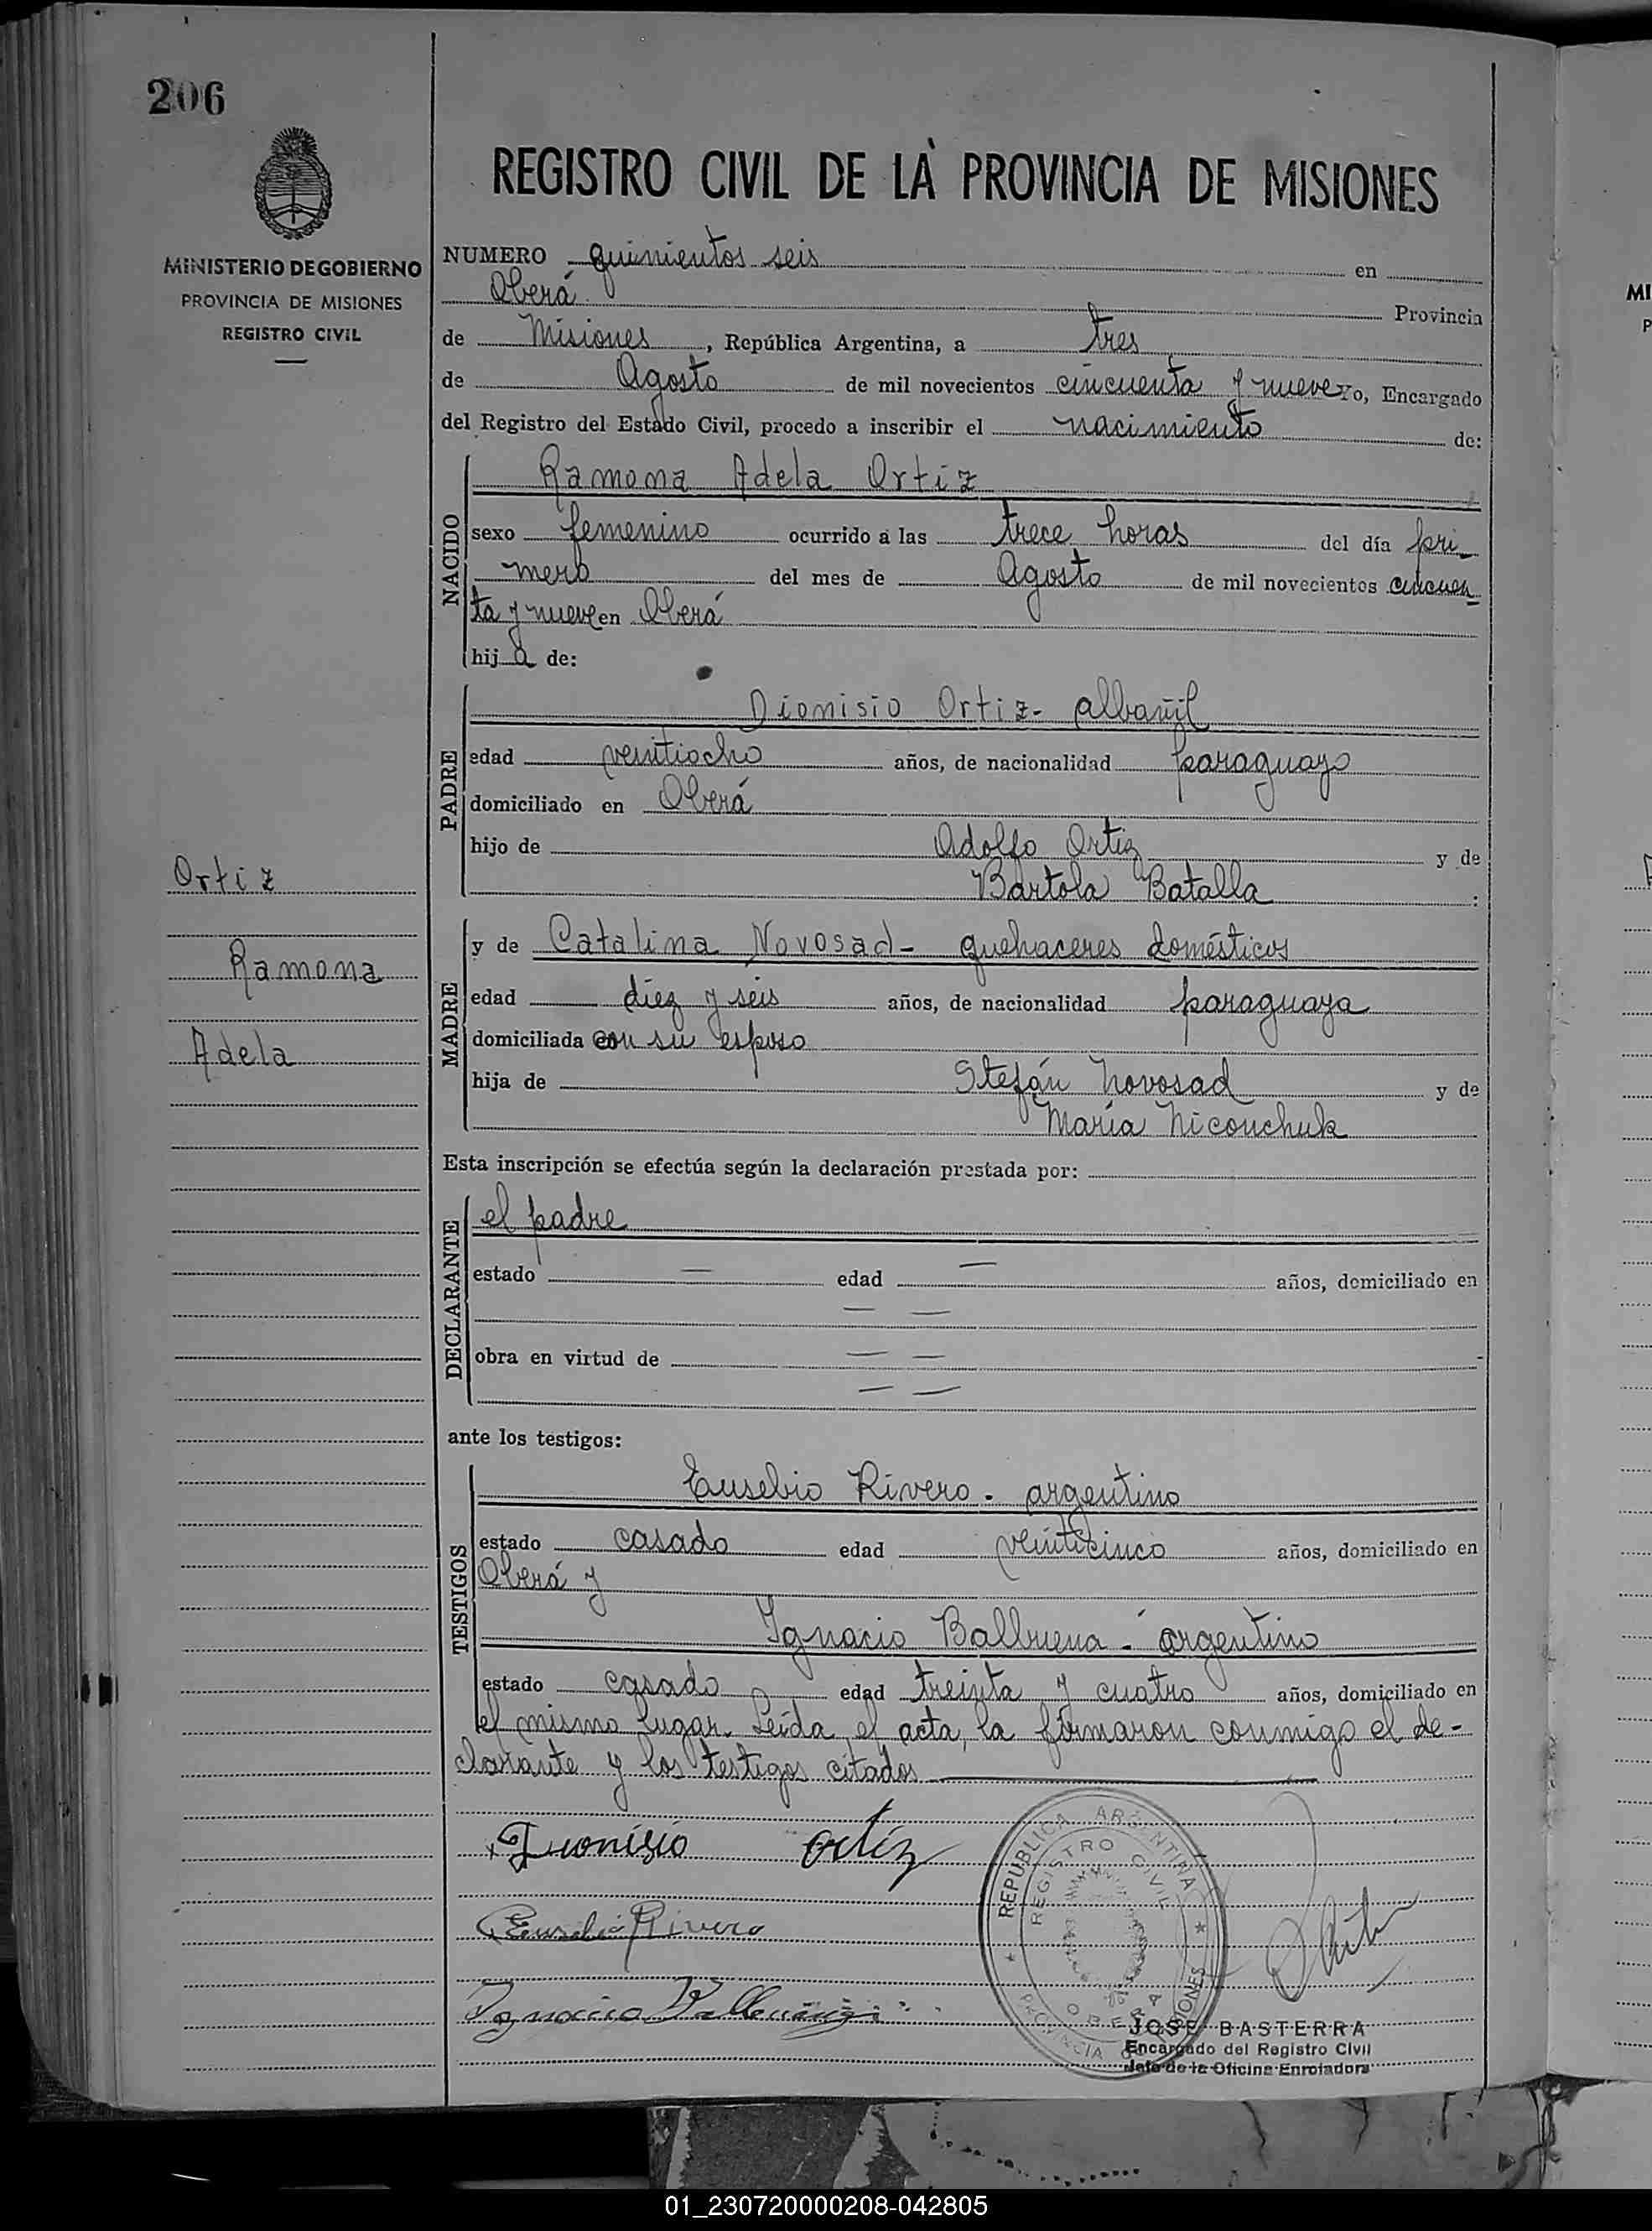 206
MINISTERIO DE GOBIERNO
PROVINCIA DE MISIONES
REGISTRO CIVIL
REGISTRO CIVIL DE LA PROVINCIA DE MISIONES
NUMERO quinientos seis en
Oberá Provincia
de Misiones, República Argentina, a tres
de Agosto de mil novecientos cincuenta y nueve yo, Encargado
del Registro del Estado Civil, procedo a inscribir el nacimiento de:
NACIDO
Ramona Adela Ortiz
sexo femenino ocurrido a las trece horas del día pri-
mero del mes de Agosto de mil novecientos cincuen-
ta y nueve en Oberá
hij a de:
PADRE
Dionisio Ortiz - albañil
edad veintiocho años, de nacionalidad paraguayo
domiciliado en Oberá
hijo de Adolfo Ortiz y de
Bartola Batalla :
Ortiz
Ramona
Adela
MADRE
y de Catalina Novosad - quehaceres domésticos
edad diez y seis años, de nacionalidad paraguaya
domiciliada con su esposo
hija de Stefán Novosad y de
María Niconchuk
Esta inscripción se efectúa según la declaración prestada por:
DECLARANTE
el padre
estado — edad — años, domiciliado en
— —
obra en virtud de — —
— —
ante los testigos:
TESTIGOS
Eusebio Rivero - argentino
estado casado edad veinticinco años, domiciliado en
Oberá y
Ignacio Balbuena - argentino
estado casado edad treinta y cuatro años, domiciliado en
el mismo lugar. Leída el acta, la firmaron conmigo el de-
clarante y los testigos citados
Dionisio Ortiz
Eusebio Rivero
Ignacio Balbuena
REPUBLICA ARGENTINA
REGISTRO CIVIL
OBERA
PROVINCIA DE MISIONES
JOSE BASTERRA
Encargado del Registro Civil
Jefe de la Oficina Enroladora
MI
P
01_230720000208-042805